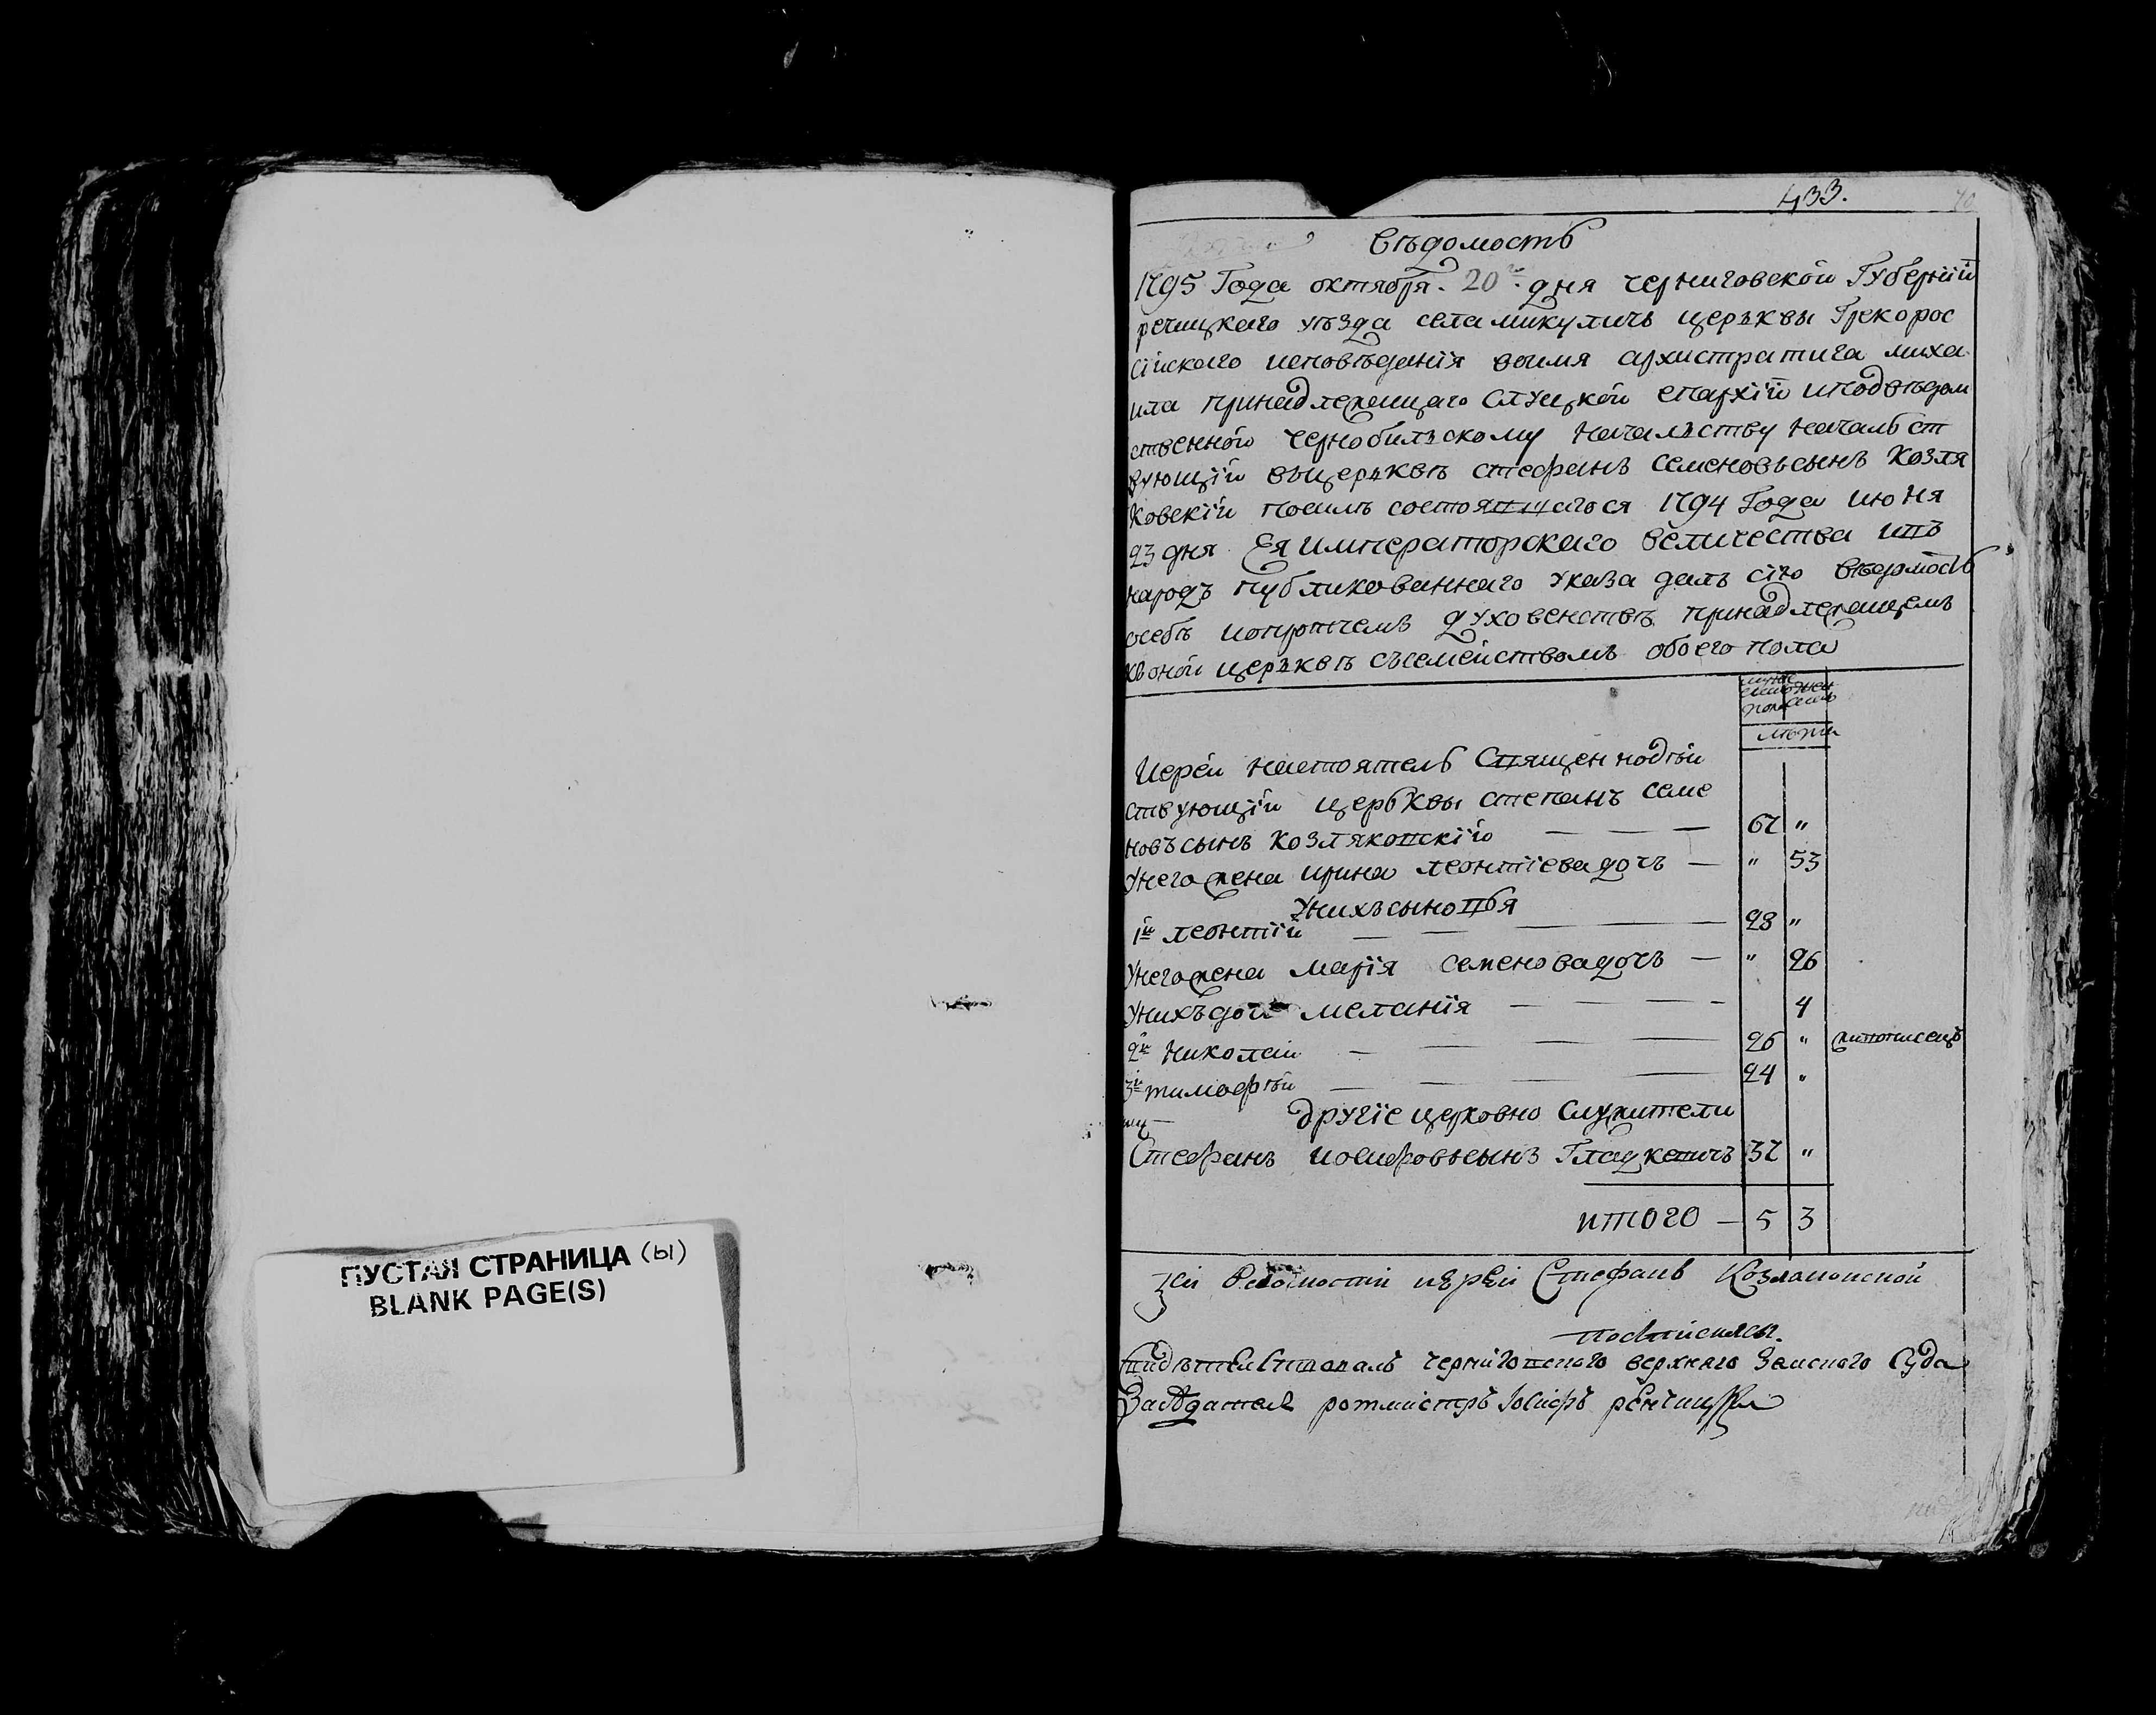 ПУСТАЯ СТРАНИЦА (ы)
BLANK PAGE(S)
433.
70
Вѣдомость
1795 Года октября 20го дня черниговской Губерніи
речицкаго уѣзда села микуличъ церъквы Грекорос
сійскаго исповѣданія воимя архистратига миха
ила принадлежищаго Слуцкой епархіи иподвѣдом
ственной чернобилъскому началъству начальст
вующій въцерквѣ стефанъ семеновъсынъ Козля
ковскій посилѣ состоявшагося 1794 Года июня
23 дня Ея императорскаго величества въ
народъ публикованнаго указа далъ сію вѣдомость
осебѣ ипротчемъ духовенствѣ принадлежащемъ
къоной церъквѣ съсемействомъ обоего пола
лѣта
Иерей настоятель Священнодѣй
ствующій церьквы степанъ семе
новъсынъ козляковскій — — — 67 "
Унего жена ирина леонтіевадочъ — " 53
Унихъсыновья
1й леонтій — — — — 28 "
Унего жена марія семеновадочъ — " 26
Унихъдочь меланія — — — — 4
2й николай — — — — 26 " живописецъ
3й тимофѣй — — — — 24 "
другіе церковно служители
Стефанъ иосифовъсынъ Гладкевичъ 37 "
итого — 5 3
Ксей Ведомости иерей Стефанъ Козлаковской
подписался.
Свидѣтельствовалъ черниговского верхнего Земского Суда
Заседатель ротмистръ Іосифъ